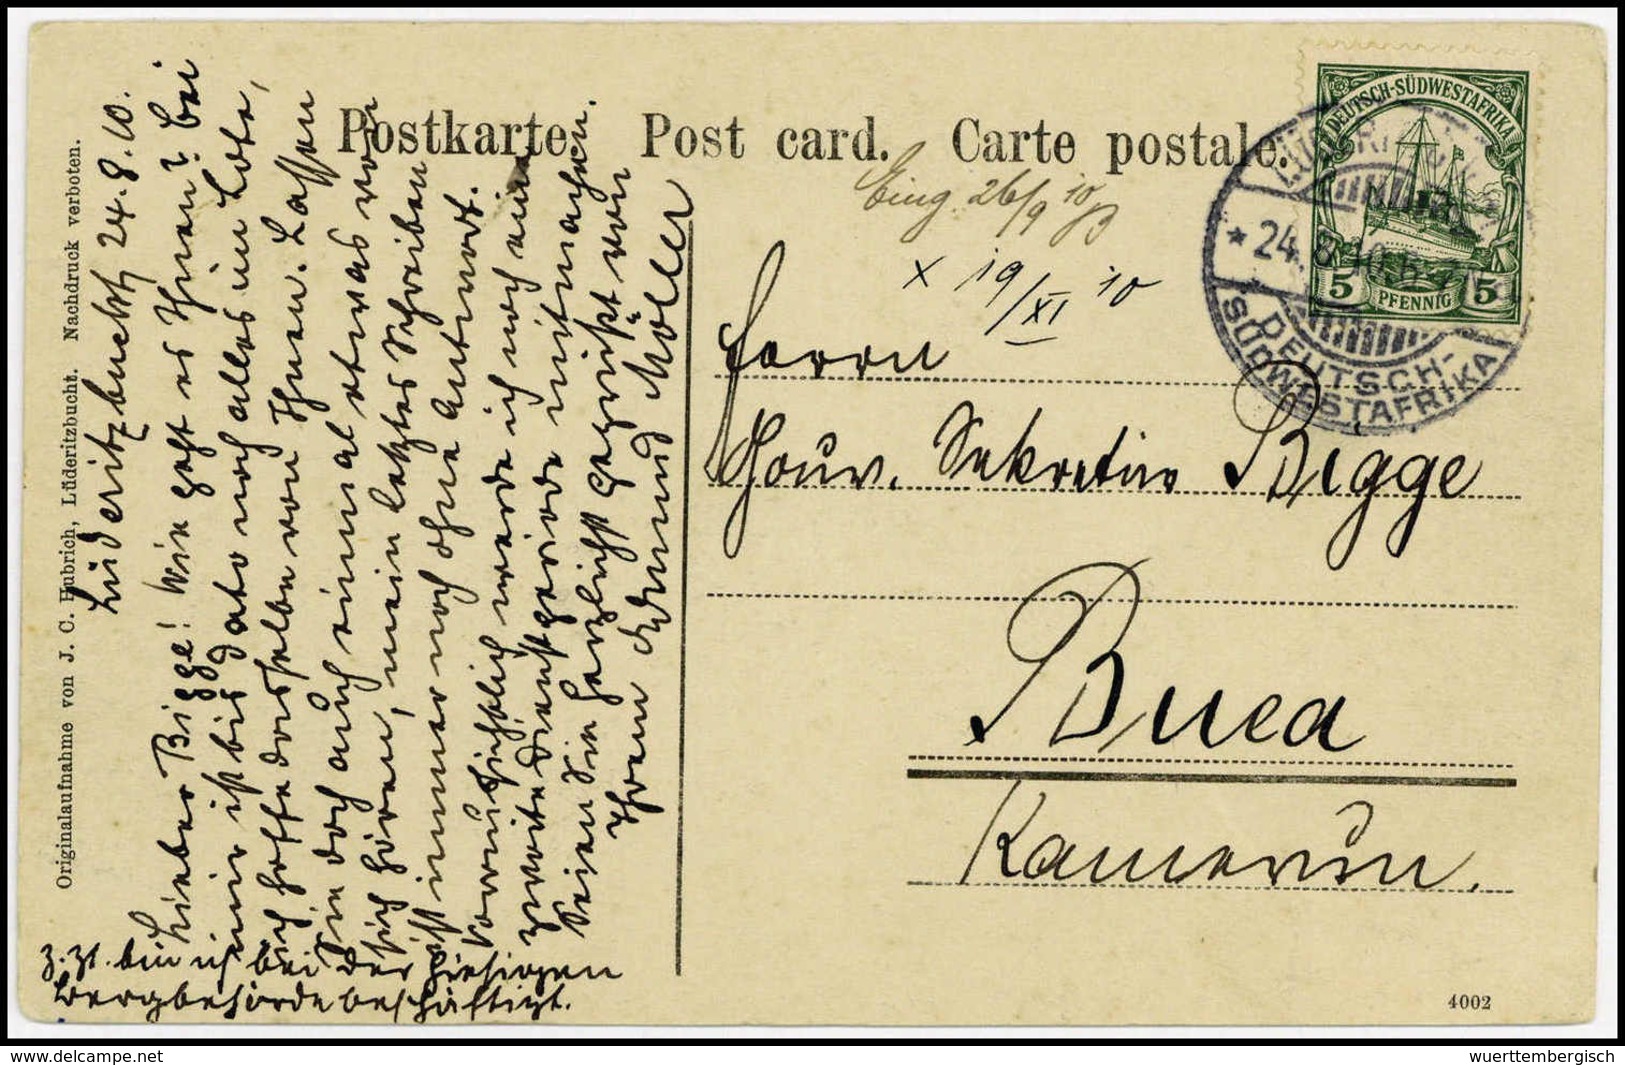 Postkarte. Post card. Carte postale.
DEUTSCH-SÜDWESTAFRIKA
5 PFENNIG 5
LÜDERITZBUCHT
* 24.8.10.6-7
DEUTSCH-
SÜDWESTAFRIKA
Eing 26/9 10
x 19/XI 10
Herrn
Gouv. Sekretär Bigge
Buea
Kamerun.
Lüderitzbucht 24.8.10.
Lieber Bigge! Wie geht es Ihnen? bei
mir ist bis dato noch alles im Lote,
ich hoffe dasselbe von Ihnen. Lassen
Sie doch auch einmal etwas von
sich hören, mein letztes Schreiben
ist immer noch ohne Antwort.
Voraussichtlich werde ich noch eine
zweite Dienstperiode mitmachen.
Seien Sie herzlichst gegrüßt von
Ihrem Edmund Möller
z. Zt. bin ich bei der hiesigen
Bergbehörde beschäftigt.
Originalaufnahme von J. C. Hubrich, Lüderitzbucht. Nachdruck verboten.
4002
delcampe.net
wuerttembergisch